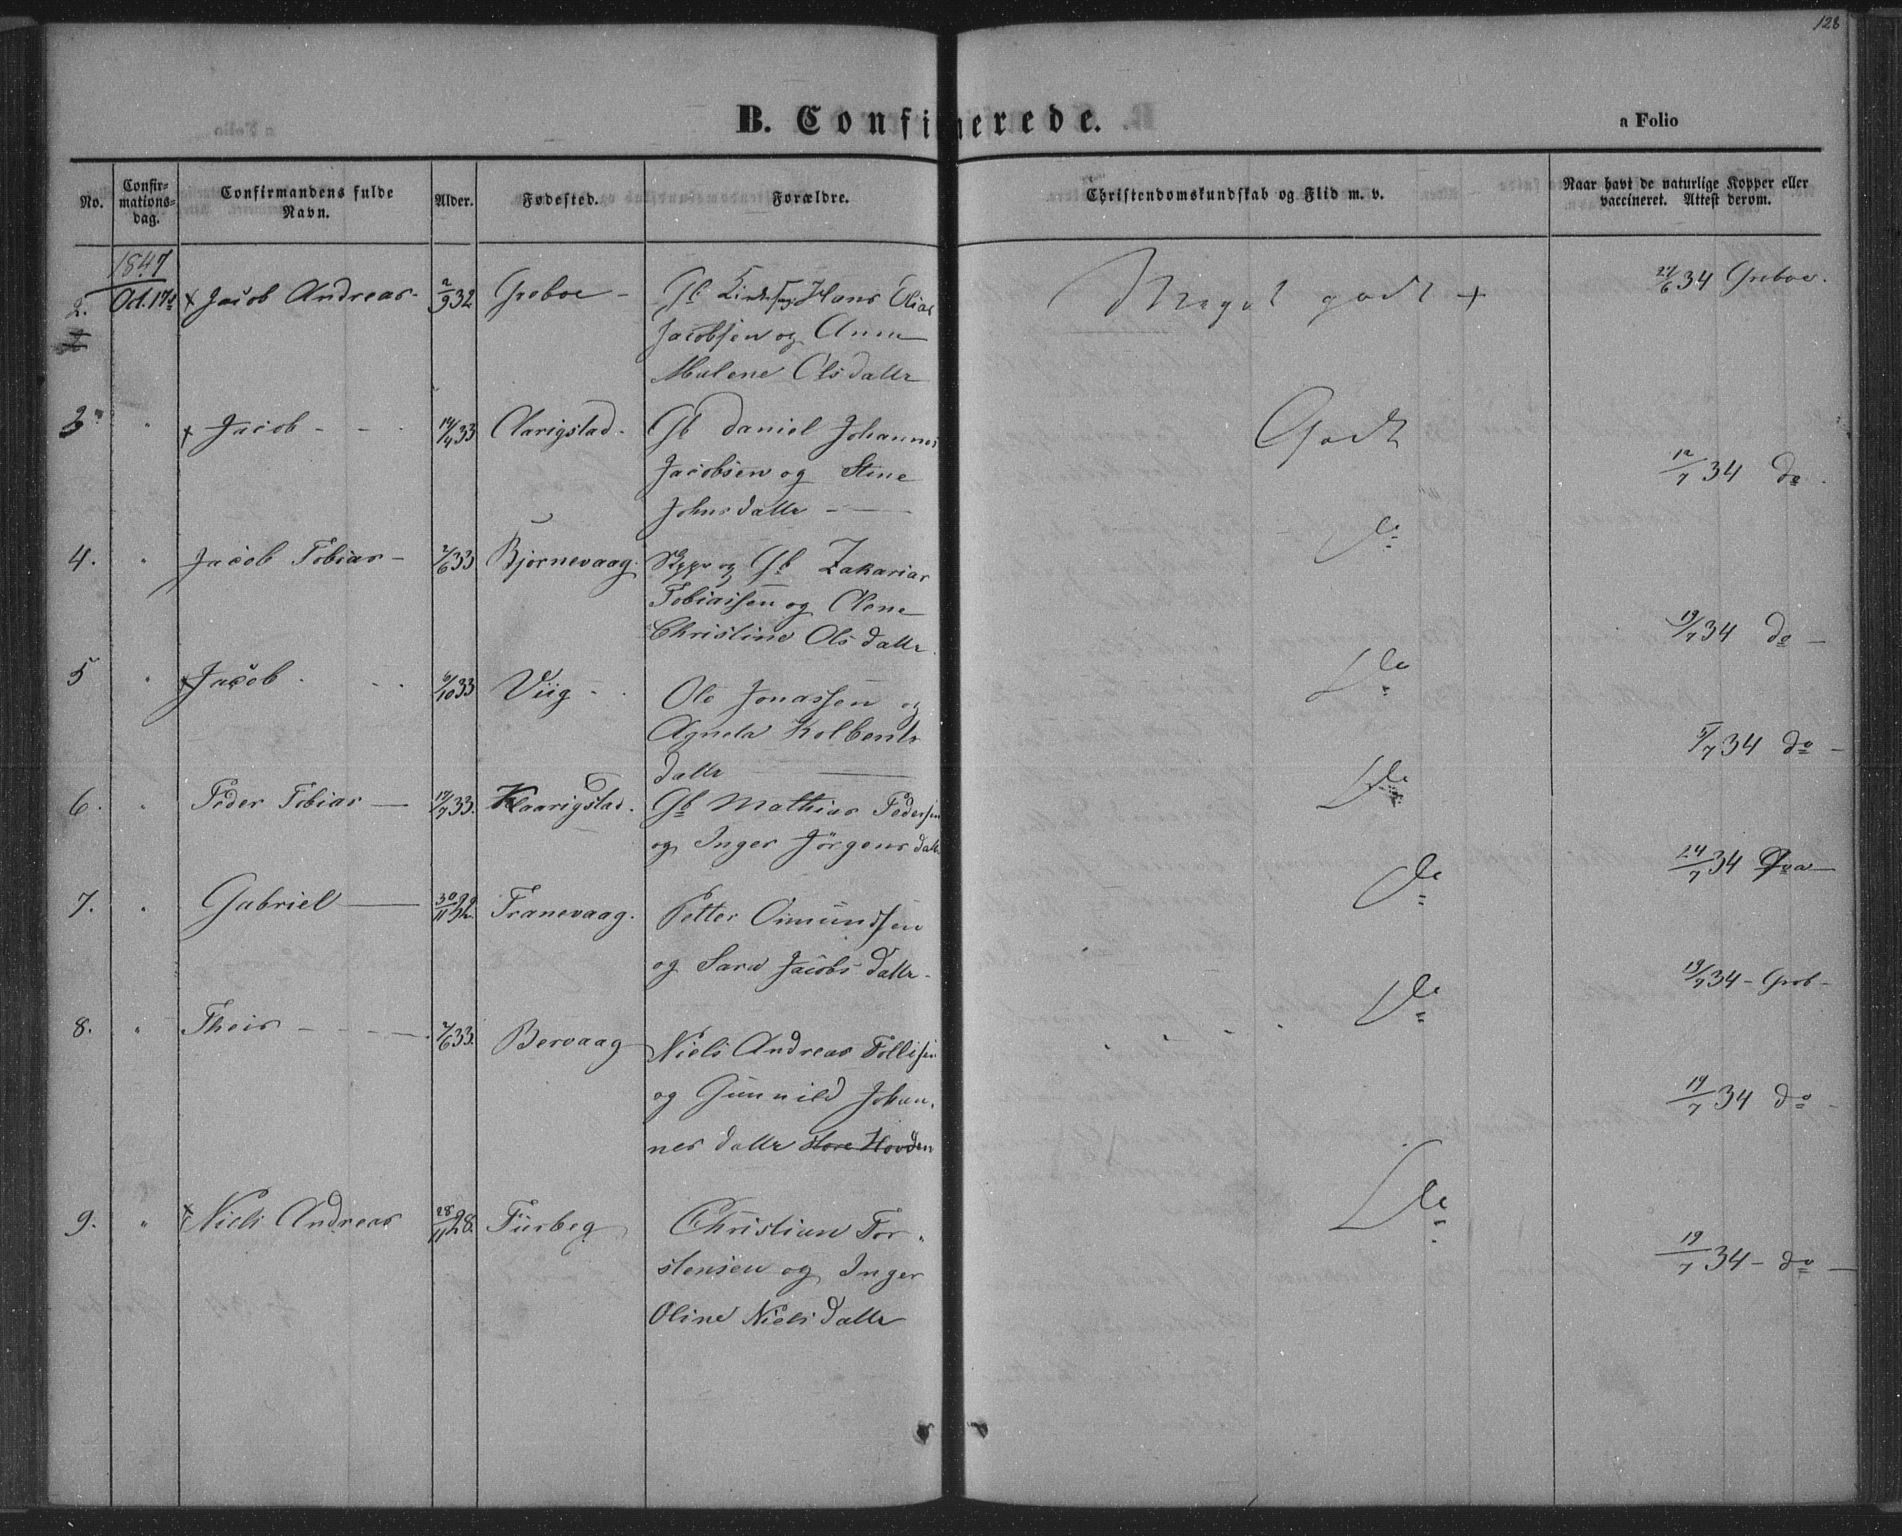 128
B. Confirmerede.
a Folio
No.
Confir-
mations-
dag.
Confirmandens fulde
Navn.
Alder.
Fødested.
Forældre.
Christendomskundskab og Flid m. v.
Naar havt de naturlige Kopper eller
vaccineret. Attest derom.
1847
2. Oct. 17de Jacob Andreas - 2/9 32 Greboe - Gb Hans Elias
Jacobsen og Anne
Malene Olsdattr
Meget godt +
27/6 34 Greboe.
3 " Jacob - - - 14/4 33 Clarigstad - Gb Daniel Johannes
Jacobsen og Stine
Johnsdattr -
Godt
12/7 34 do
4. " Jacob Tobias - 2/6 33 Bjørnevaag. og Gb Zakarias
Tobiassen og Olene
Christine Olsdattr.
do
19/7 34 do -
5 " Jacob - - - 6/10 33 Viig - - Ole Jonassen og
Agneta Kolbents
dattr
do
5/7 34 do -
6. " Peder Tobias - 17/7 33. Klaarigstad. Gb Mathias Pedersen
og Inger Jørgensdatr
do
24/7 34
7. " Gabriel - 30/11 32 Tranevaag. Petter Omundsen
og Sara Jacobsdattr.
do
19/7 34 - Greb -
8. " Theis - - - 7/6 33. Bervaag Niels Andreas Tollisen
og Gunnild Johan-
nesdattr store Hovden
do
19/7 34 do -
9. " Niels Andreas 28/11 28. Furbeg Christian Tor-
stensen og Inger
Oline Nielsdattr
do
19/7 34 - do -